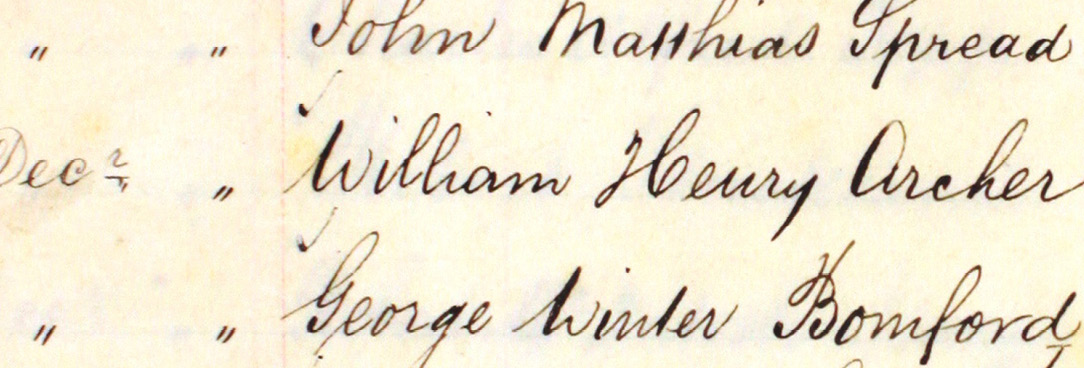 " " John Matthias Spread
Decr " William Henry Archer
" " George Winter Bomford